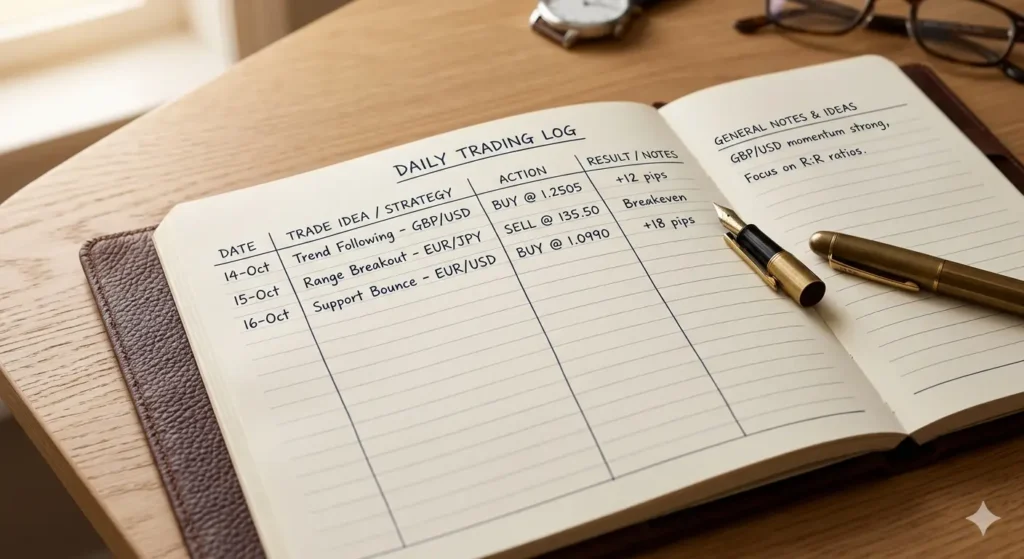 DAILY TRADING LOG
DATE TRADE IDEA / STRATEGY ACTION RESULT / NOTES
14-Oct Trend Following - GBP/USD BUY @ 1.2505 +12 pips
15-Oct Range Breakout - EUR/JPY SELL @ 135.50 Breakeven
16-Oct Support Bounce - EUR/USD BUY @ 1.0990 +18 pips
GENERAL NOTES & IDEAS
GBP/USD momentum strong,
Focus on R:R ratios.